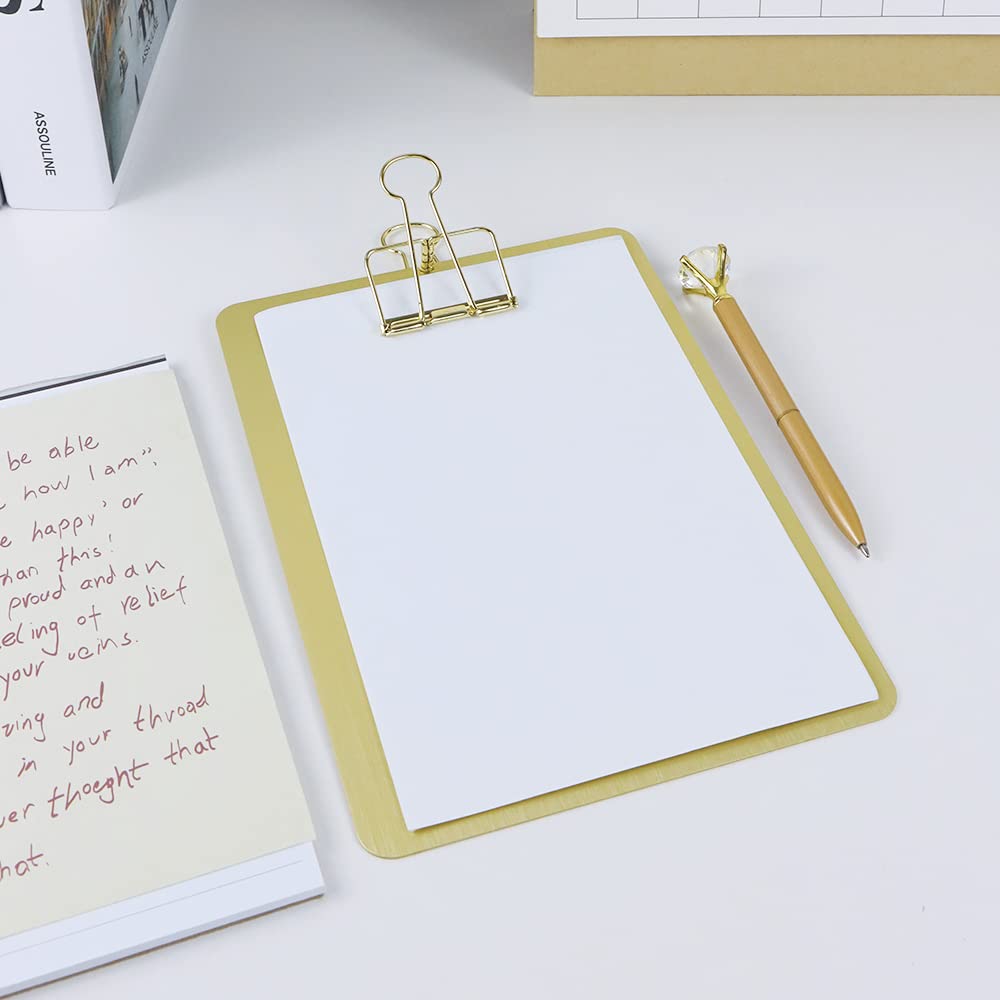 ASSOULINE
be able
how I am",
e happy' or
han this!
proud and an
eeling of relief
your veins.
zing and
in your throad
ver thoeght that
hat.